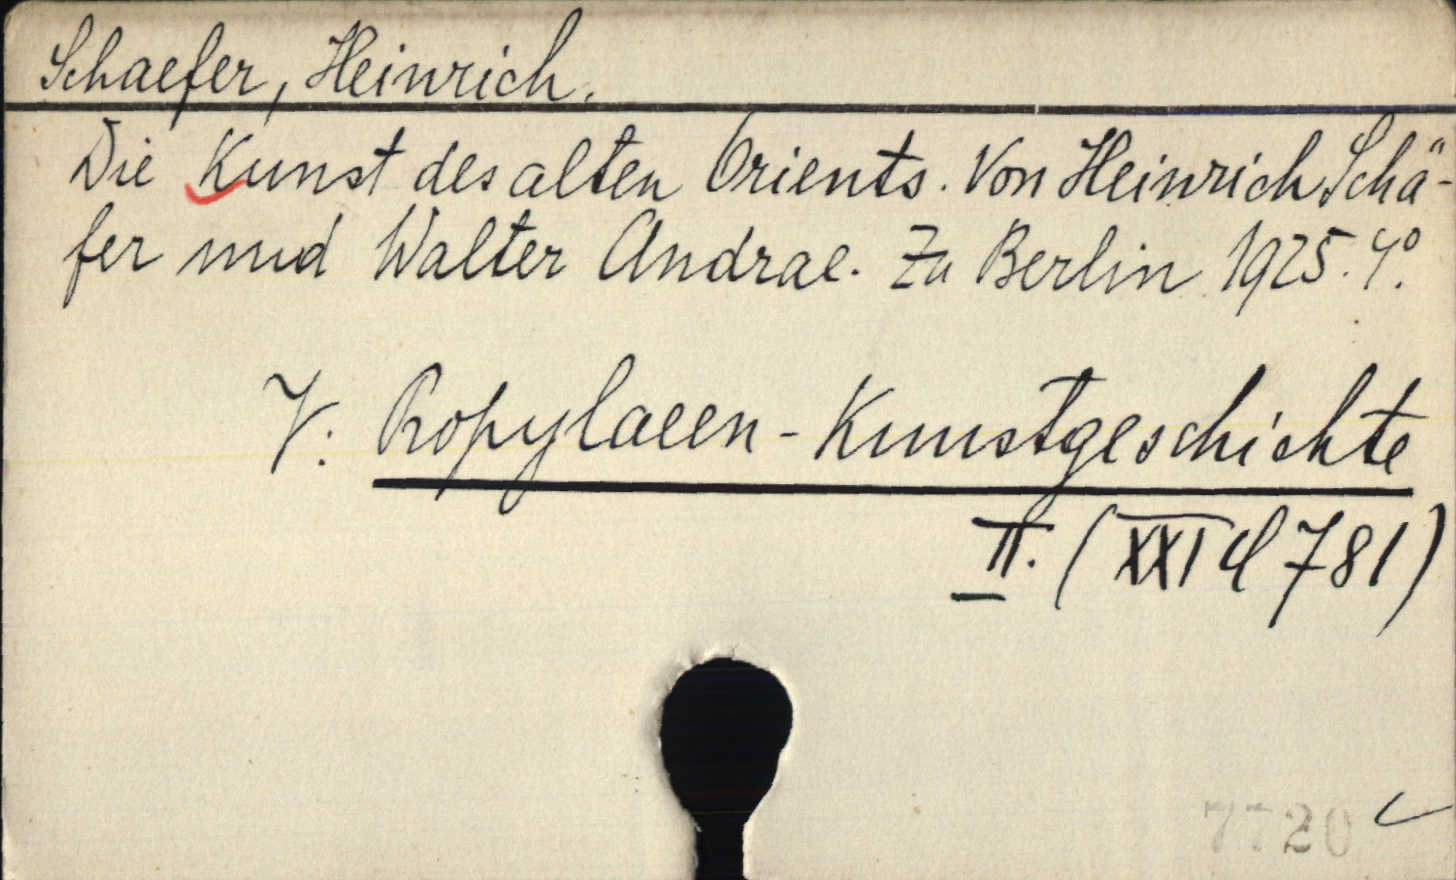 Schaefer, Heinrich.
Die Kunst des alten Orients. Von Heinrich Schä-
fer und Walter Andrae. Zu Berlin 1925. 4°.
V: Propylaeen-Kunstgeschichte
II. (XXI d 781)
7720